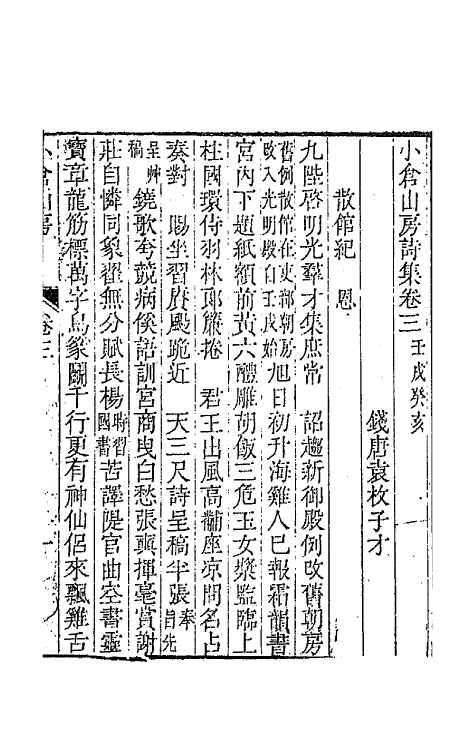 小倉山房詩集卷三 壬戌癸亥
錢唐袁枚子才
散館紀 恩
九陛啓明光羣才集庶常 詔趨新御殿例改舊朝房
舊例散館在吏部朝房改入光明殿自壬戌始旭日初升海雞人已報霜韻書
宮內下題紙額前黃六醴雕胡飯三危玉女漿監臨上
柱國環侍羽林郎簾捲 君王出風高黼座凉問名占
奏對 賜坐習賡颺跪近 天三尺詩呈稿半張奉旨先
呈艸稿鐃歌夸競病傒語訓宮商曳白愁張奭揮毫賞謝
莊自憐同象翟無分賦長楊時習國書苦譯隄官曲空書靈
寶章龍筋標萬字鳥篆鬬千行更有神仙侶來飄雞舌
小倉山房 卷三 一